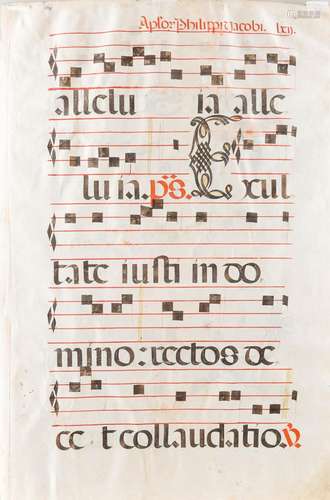 Apſor. Philippi Jacobi. lxj.
allelu ia alle
luia. p̄s. Exul
tate iusti in do
mino: rectos de
ce t collaudatio.